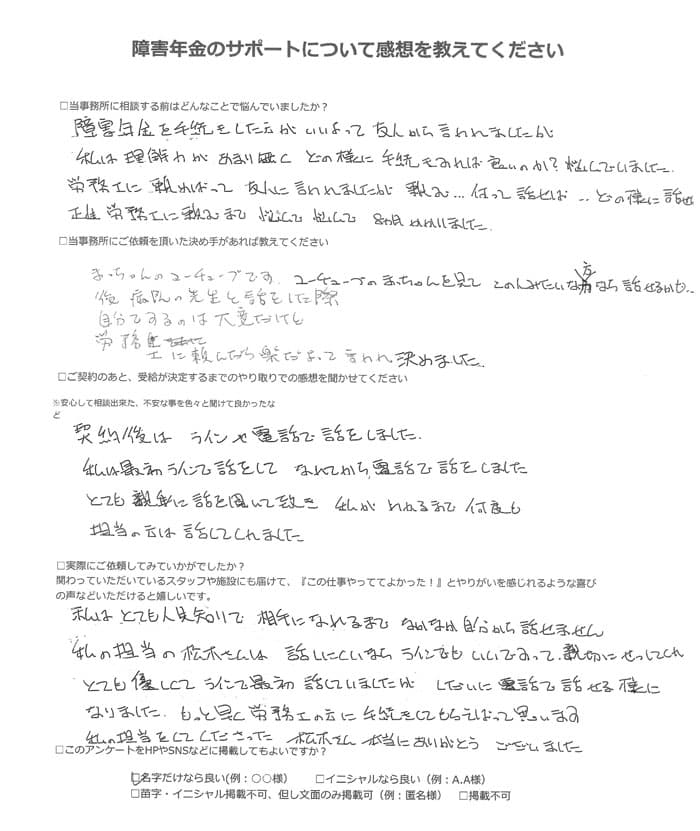 障害年金のサポートについて感想を教えてください
□当事務所に相談する前はどんなことで悩んでいましたか？
障害年金を手続をした方がいいよって友人から言われましたが
私は理解力があまり無く どの様に手続をすれば良いのか？悩んでいました.
労務士に頼めばって友人に言われましたが 頼む… 何って話せば ‥どの様に話せ
正直 労務士に頼むまで 悩んで 悩んで 8カ月かかりました.
□当事務所にご依頼を頂いた決め手があれば教えてください
まっちゃんのユーチューブです. ユーチューブのまっちゃんを見て この人みたいな方なら話せるかも‥
後 病院の先生と話をした際
自分でするのは大変だけど
労務
士に頼んだら楽だよって言われ 決めました.
□ご契約のあと、受給が決定するまでのやり取りでの感想を聞かせてください
※安心して相談出来た、不安な事を色々と聞けて良かったな
ど
契約後は ラインや電話で話をしました.
私は最初ラインで話をして なれてから、電話で話をしました
とても親身に話を聞いて頂き 私がなれるまで 何度も
担当の方は話してくれました
□実際にご依頼してみていかがでしたか？
関わっていただいているスタッフや施設にも届けて、『この仕事やっててよかった！』とやりがいを感じれるような喜び
の声などいただけると嬉しいです。
私はとても人見知りで 相手になれるまで なかなか自分から話せません
私の担当の松木さんは 話しにくいならラインでもいいですって、親切にせっしてくれ
とても優しくて ラインで最初 話していましたが しだいに電話で話せる様に
なりました. もっと早く労務士の方に手続をしてもらえばって思います
私の担当をしてくださった 松木さん 本当にありがとう ございました
□このアンケートをHPやSNSなどに掲載してもよいですか？
□名字だけなら良い(例：〇〇様） □イニシャルなら良い（例：A.A様）
□苗字・イニシャル掲載不可、但し文面のみ掲載可（例：匿名様） □掲載不可